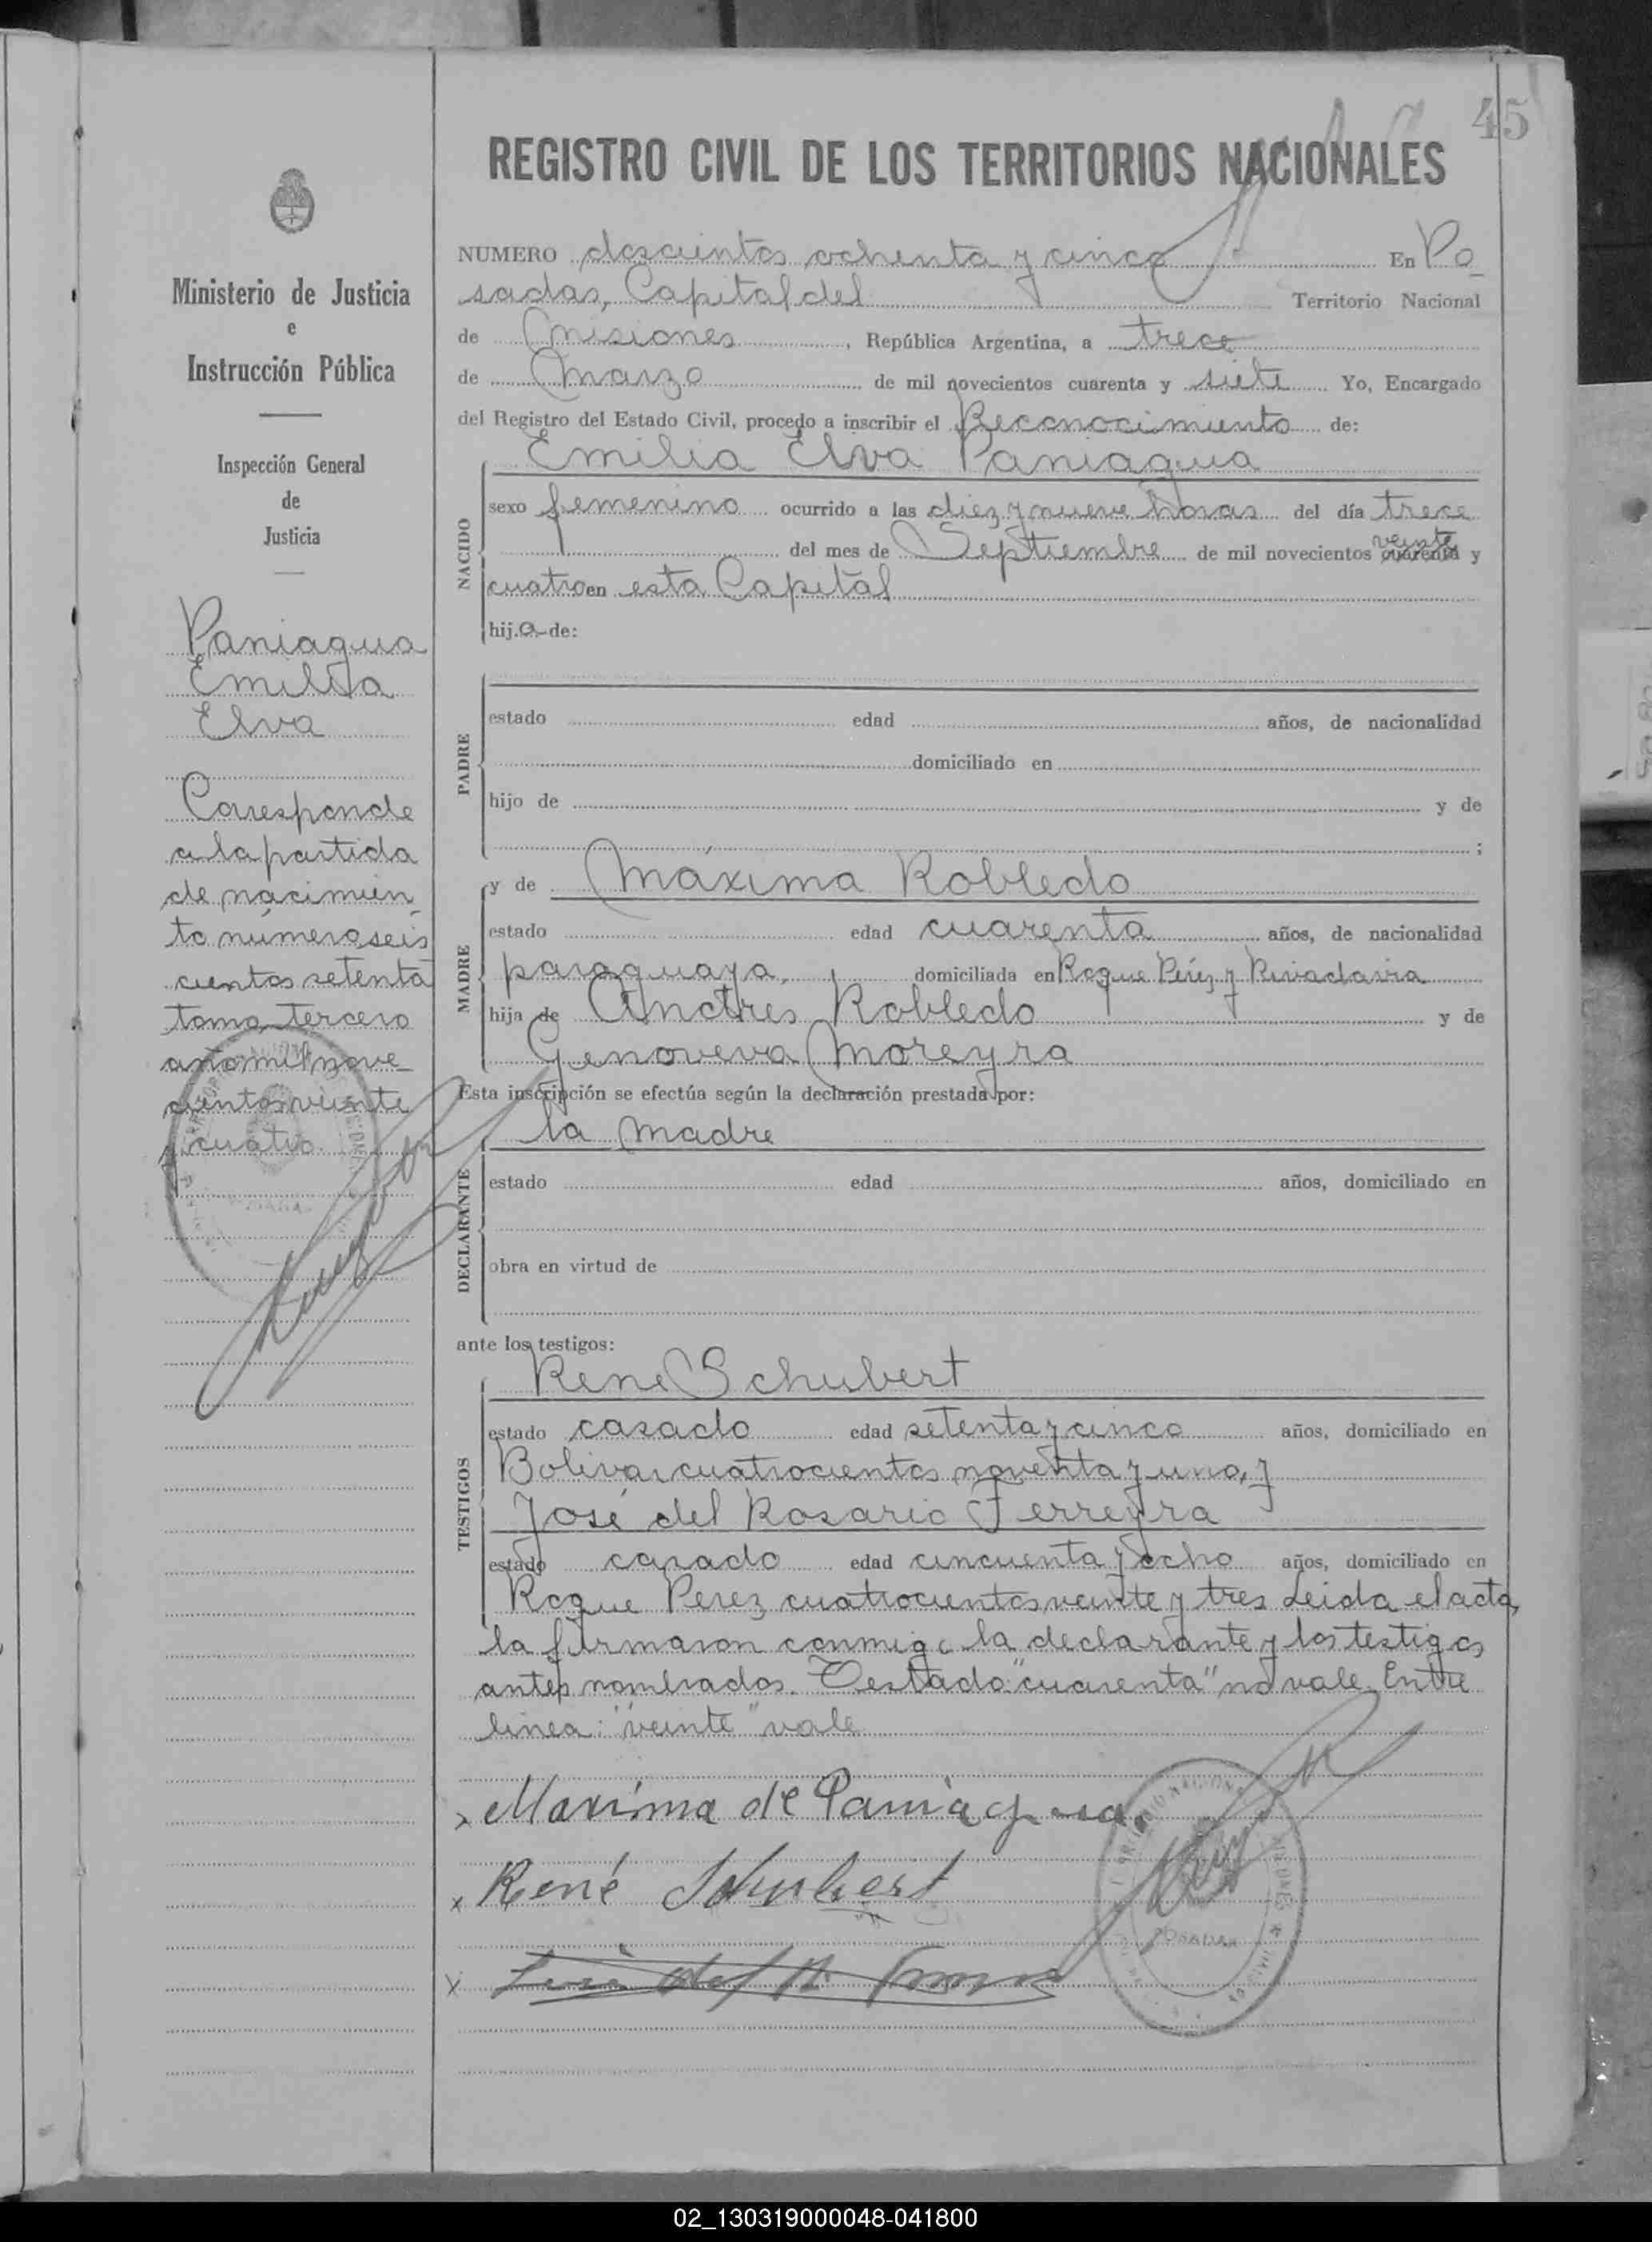 45
REGISTRO CIVIL DE LOS TERRITORIOS NACIONALES
Ministerio de Justicia
e
Instrucción Pública
Inspección General
de
Justicia
Paniagua
Emilia
Elva
Corresponde
a la partida
de nacimien
to número seis
cientos setenta
tomo tercero
año mil nove
cientos veinte
y cuatro.
NUMERO doscientos ochenta y cinco En Po
sadas, Capital del Territorio Nacional
de Misiones, República Argentina, a trece
de Marzo de mil novecientos cuarenta y siete Yo, Encargado
del Registro del Estado Civil, procedo a inscribir el Reconocimiento de:
Emilia Elva Paniagua
NACIDO
sexo femenino ocurrido a las diez y nueve horas del día trece
veinte
del mes de Septiembre de mil novecientos cuarenta y
cuatro en esta Capital
hij.a de:
PADRE
estado edad años, de nacionalidad
domiciliado en
hijo de y de
;
MADRE
y de Máxima Robledo
estado edad cuarenta años, de nacionalidad
paraguaya, domiciliada en Roque Pérez y Rivadavia
hija de Andres Robledo y de
Genoveva Moreyra
Esta inscripción se efectúa según la declaración prestada por:
la madre
DECLARANTE
estado edad años, domiciliado en
obra en virtud de
ante los testigos:
TESTIGOS
Rene Schubert
estado casado edad setenta y cinco años, domiciliado en
Bolivar cuatrocientos noventa y uno, y
José del Rosario Ferreyra
estado casado edad cincuenta y ocho años, domiciliado en
Roque Perez cuatrocientos veinte y tres Leida el acta,
la firmaron conmigo la declarante y los testigos
antes nombrados. Testado "cuarenta" no vale. Entre
linea: "veinte" vale
x Maxima de Paniagua
x René Schubert
x José del R.
POSADAS
02_130319000048-041800